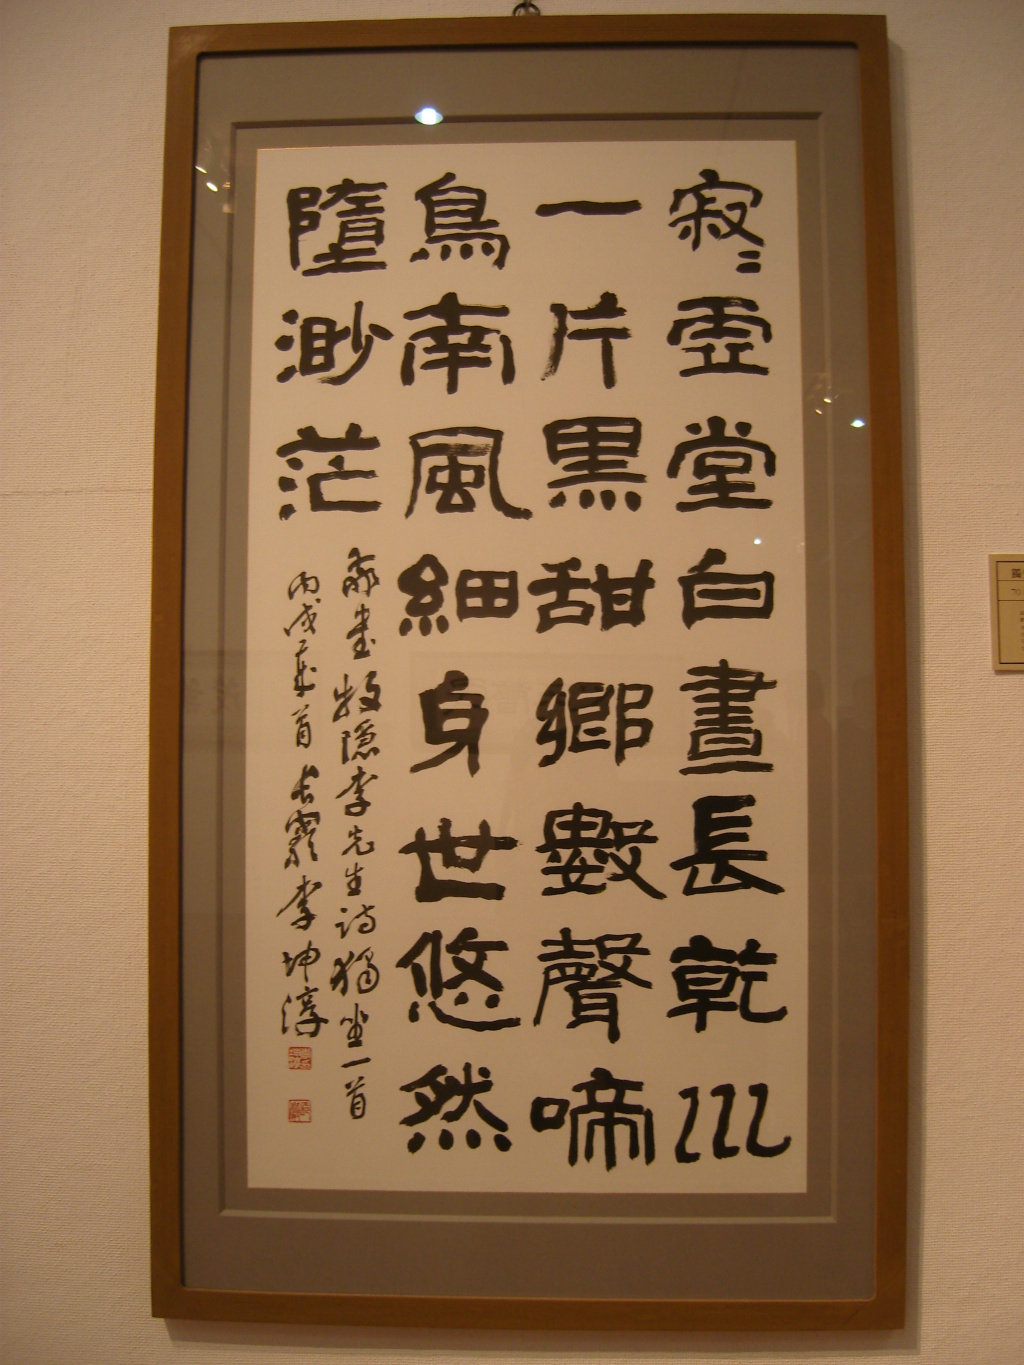 寂〻虛堂白晝長乾巛
一片黑甜鄉數聲啼
鳥南風細身世悠然
墮渺茫
書牧隱李先生詩獨坐一首
丙戌首李坤淳